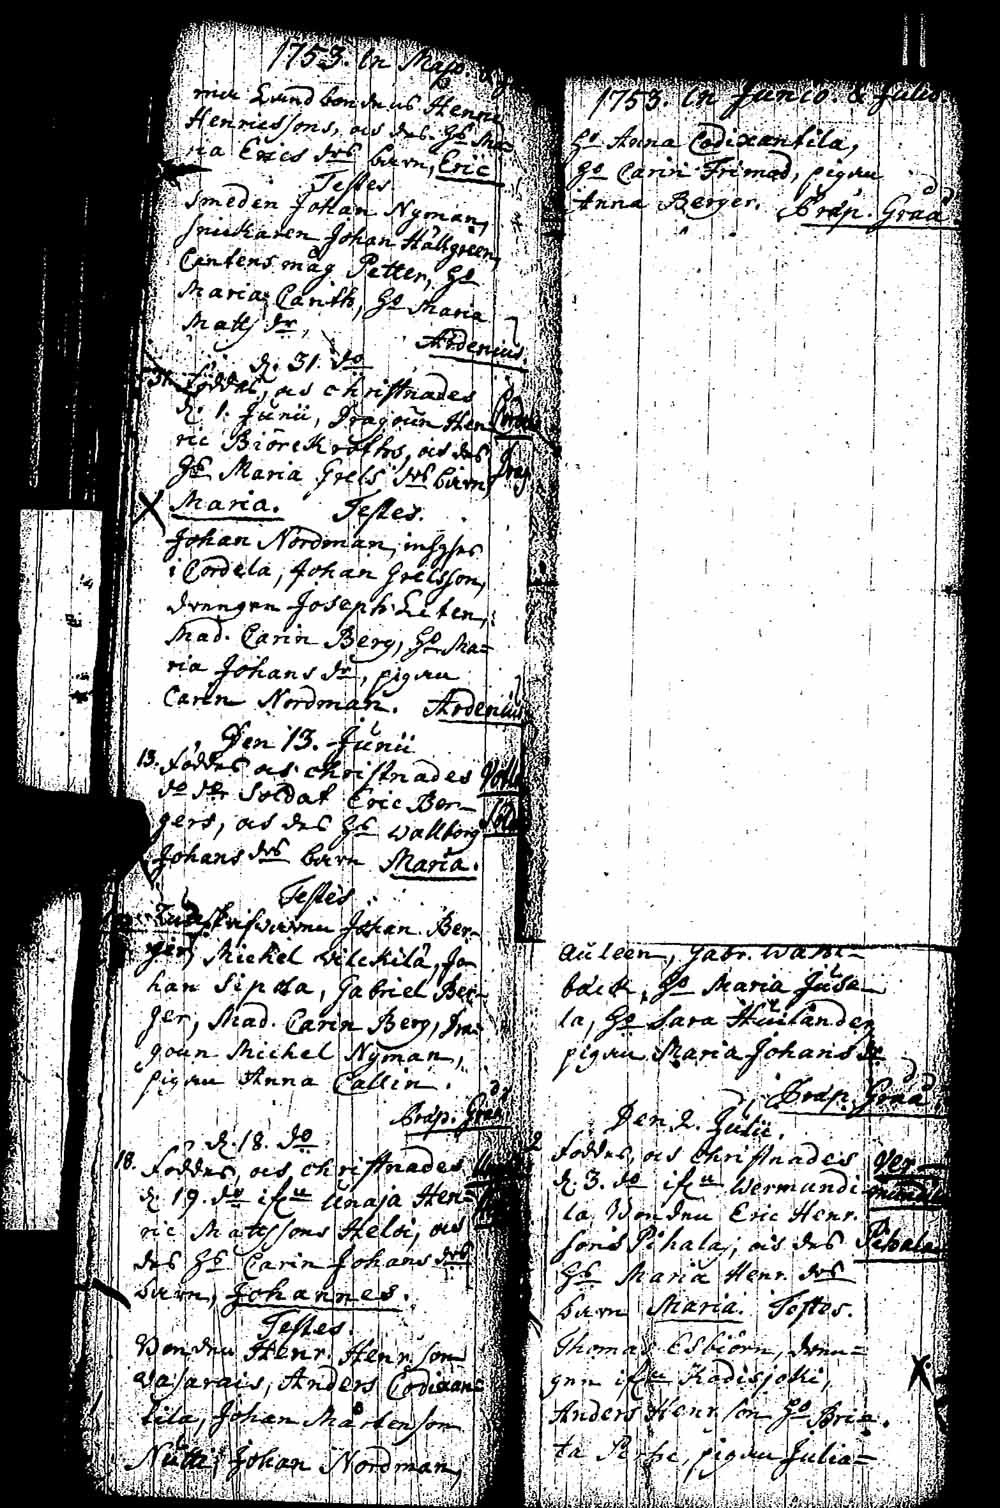 1753. In Majo.
Lundbondens Henric
Henricssons, ås des. Hs Ma-
ria Erics drs barn, Eric
Testes
Smeden Johan Nyman,
snickaren Johan Hällgreen,
Cantens måg Petter, Ho
Maria Canth, Ho Maria
Matts dr,
Ardenius.
d. 31. do
31. föddes, ås christnades
d. 1. Junii, Dragoun Hen-
ric Biörckroths, ås des
Hs Maria Grels drs barn,
Drag.
Maria. Testes.
Johan Nordman, inhyses
i Cordela, Johan Grelsson,
drengen Joseph Liten,
Mad. Carin Berg, Ho Ma-
ria Johans dr, pigan
Carin Nordman. Ardenius
Den 13. Junii
13. föddes ås christnades
do der Soldat Eric Ber-
gers, ås des Hs Wallborg
Johans drs barn Maria.
Testes
Johan Ber-
ger, Michel Wilckilä, Jo-
han Sipola, Gabriel Ber-
ger, Mad. Carin Berg, Dra-
goun Michel Nyman,
pigan Anna Callin.
Præp. Graa
d. 18. do
18. föddes, ås christnades
d. 19. do ifrn Unaja Hen-
ric Mattssons Heloi, ås
des Hs Carin Johans drs
barn, Johannes.
Testes.
Bonden Henr. Henrsson
Vasarais, Anders Codixan-
tila, Johan Mårtensson
Nutti, Johan Nordman,
1753. In Junio. & Julio.
Ho Anna Codixantila,
Ho Carin Frimod, pigan
Anna Berger. Præp. Graa
Auleen, Gabr. Wahl-
bäck, Ho Maria Jusa-
la, Ho Sara Huiländer
pigan Maria Johans dr
Præp. Graa
Den 2. Julii.
2 föddes, ås christnades
d. 3. do ifrn Wermundi-
la Bonden Eric Henr.
sons Pihala, ås des Pihala
Hs Maria Henr. drs
barn Maria. Testes.
Thomas Esbiörn, dren-
gen ifrn Kodisjoki,
Anders Henrsson Ho Bri-
ta pigan Julia-